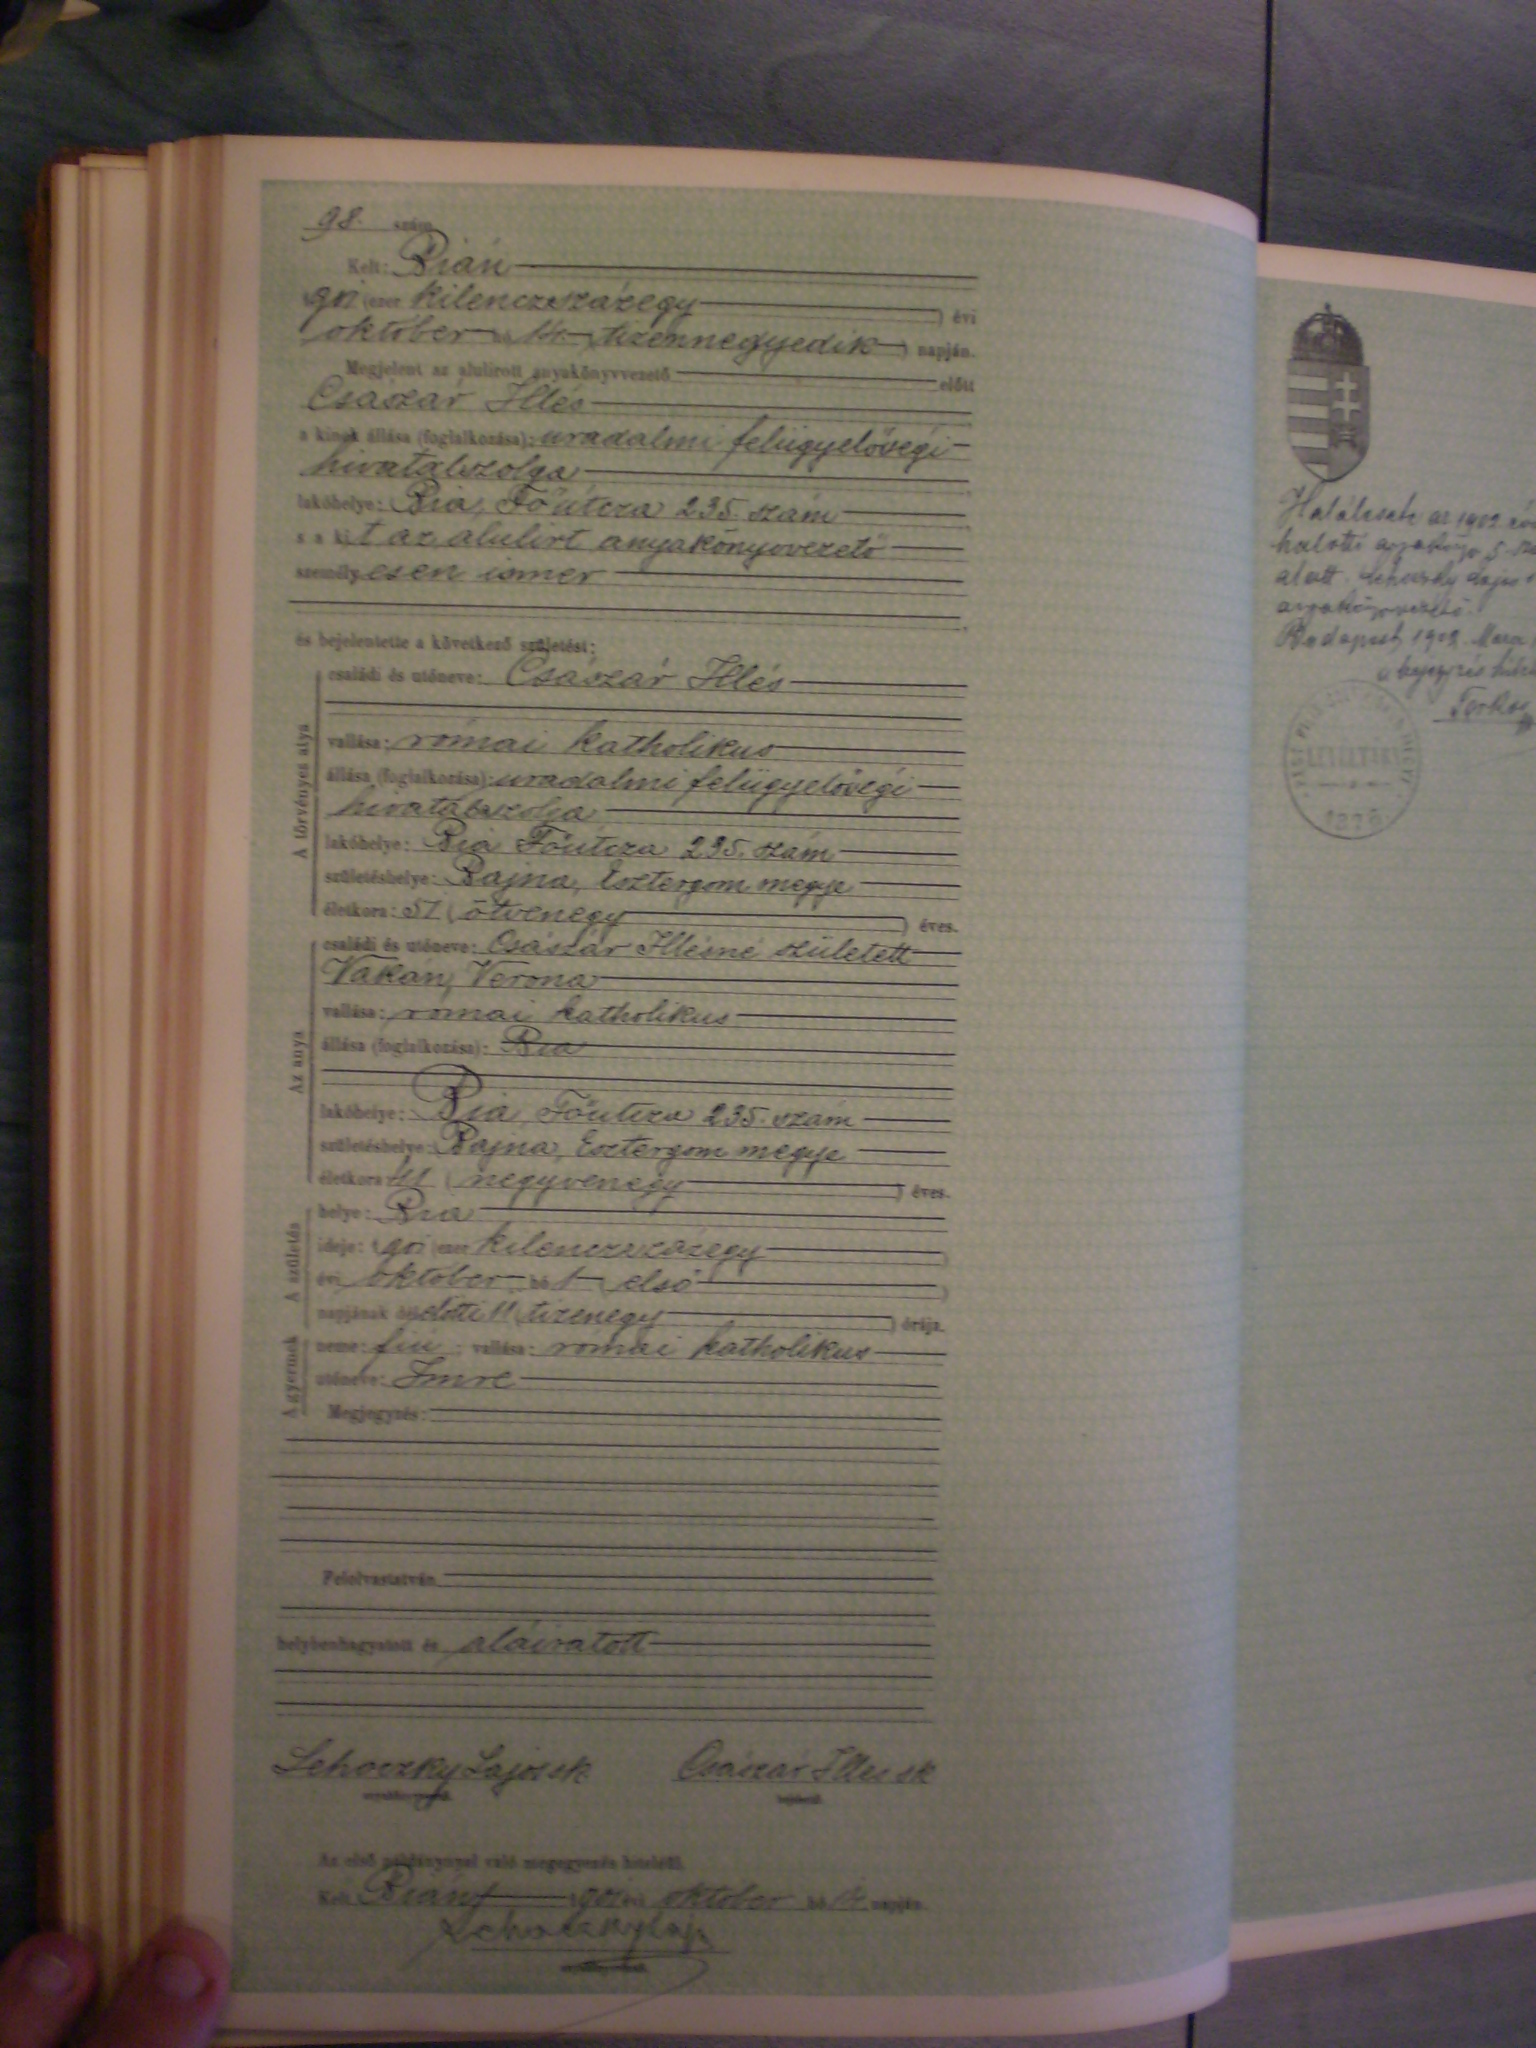 98. szám
Kelt: Bián
1901 (ezer kilenczszázegy) évi
október hó 14. (tizennegyedik) napján.
Megjelent az alulirott anyakönyvvezető előtt
Császár Illés
a kinek állása (foglalkozása): uradalmi felügyelőségi
hivatalszolga
lakóhelye: Bia, Főútcza 235. szám
s a kit az alulirt anyakönyvvezető
személyesen ismer
és bejelentette a következő születést:
A törvényes atya
családi és utóneve: Császár Illés
vallása: római katholikus
állása (foglalkozása): uradalmi felügyelőségi
hivatalszolga
lakóhelye: Bia Főútcza 235. szám
születéshelye: Bajna, Esztergom megye
életkora: 51 (ötvenegy) éves.
Az anya
családi és utóneve: Császár Illésné született
Vakán Verona
vallása: római katholikus
állása (foglalkozása): Bia
lakóhelye: Bia, Főútcza 235. szám
születéshelye: Bajna, Esztergom megye
életkora: 41 (negyvenegy) éves.
A születés
helye: Bia
ideje: 1901 (ezer kilenczszázegy)
évi október hó 1 (első)
napjának délelőtti 11 (tizenegy) órája.
A gyermek
neme: fiú; vallása: római katholikus
utóneve: Imre
Megjegyzés:
Felolvastatván,
helybenhagyatott és aláiratott
Lehoczky Lajos sk Császár Illés sk
anyakönyvvezető. bejelentő.
Az első példánynyal való megegyezés hiteléül.
Kelt Bián, 1901 évi október hó 14 napján.
Lehoczky Laj.
anyakönyvvezető.
Halálesete az 1902
halotti 5
alatt. Lehoczky Lajos
anyakönyvvezető.
Budapest, 1902.
a bejegyzés
LEVÉLTÁRA
1876